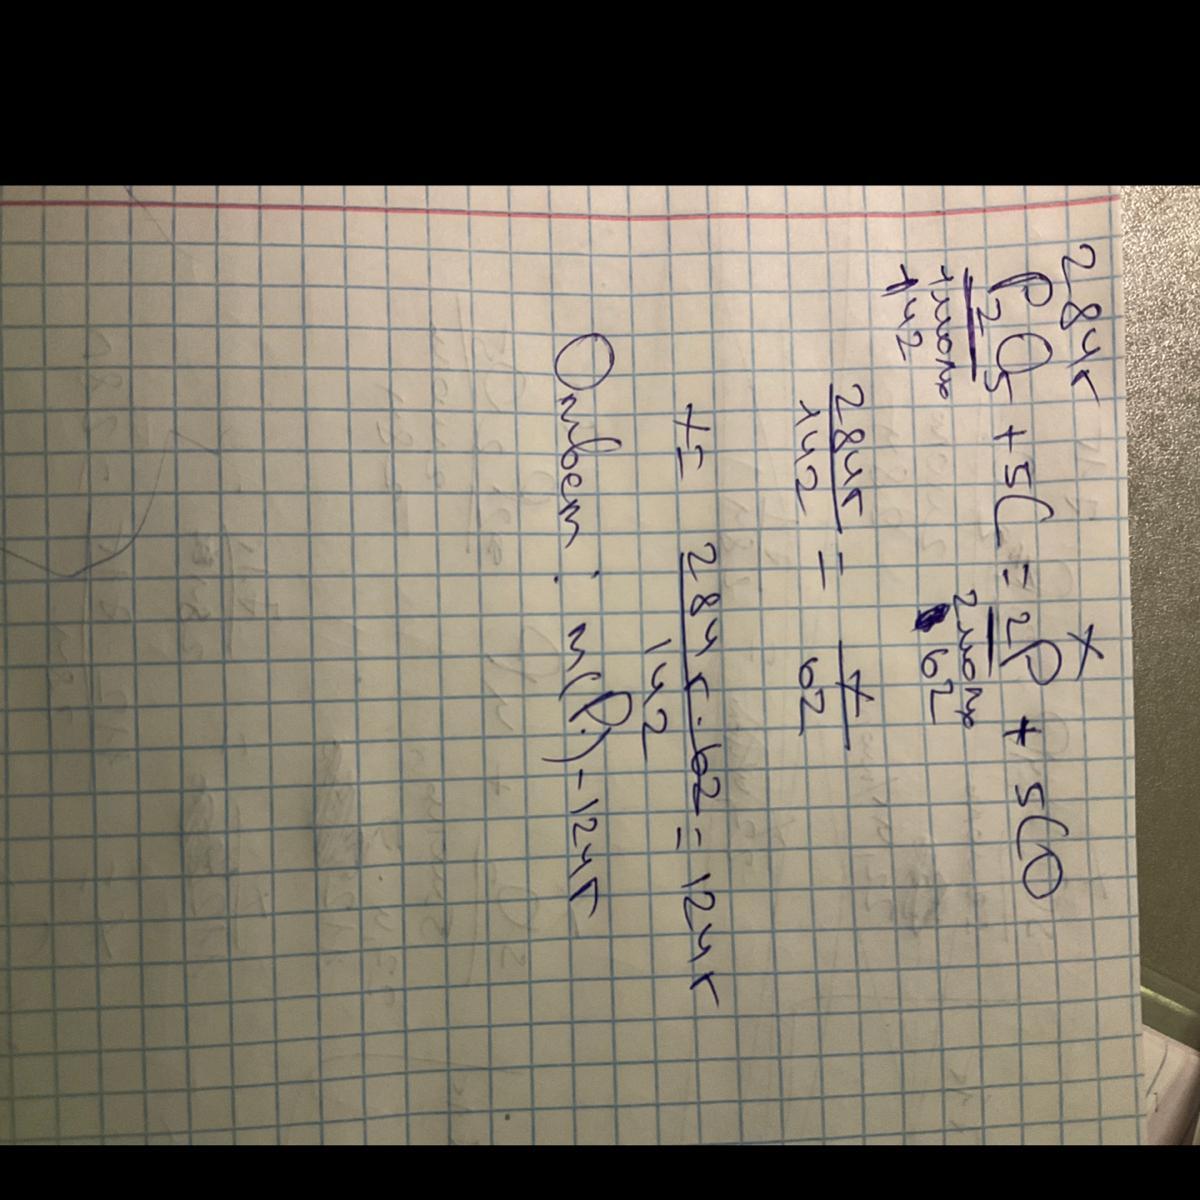 284г x
P2O5 + 5C = 2P + 5CO
1моль 2моль
142 62
284г/142 = x/62
x = 284г·62/142 = 124г
Ответ: m(P) - 124г